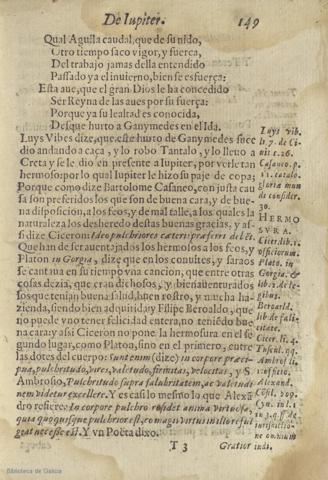 De Iupiter. 149
Qual Aguila caudal, que de su nido,
Otro tiempo saco vigor, y fuerça,
Del trabajo jamas della entendido
Passado ya el inuierno, bien se esfuerça:
Esta aue, que el gran Dios le ha concedido
Ser Reyna de las aues por su fuerça:
Porque ya su lealtad es conocida,
Desque hurto a Ganymedes en el Ida.
Luys Vibes dize, que este hurto de Ganymedes suce
dio andando a caça, y lo robo Tantalo, y lo lleuo a
Creta y se le dio en presente a Iupiter, por verle tan
hermoso: por lo qual Iupiter le hizo su paje de copa;
Porque como dize Bartolome Casaneo, con justa cau
sa son preferidos los que son de buena cara, y de bue-
na disposicion, a los feos, y de mal talle, a los quales la
naturaleza los desheredo destas buenas gracias, y as-
si dize Ciceron:
Que han de ser auentajados los hermosos a los feos, y
Platon in Gorgia, dize que en los conuites, y saraos
se cantaua en su tiempo vna cancion, que entre otras
cosas dezia, que eran dichosos, y bienauenturados
los que tenian buena salud, buen rostro, y mucha ha-
zienda, siendo bien adquirida; y Filipe Beroaldo, que
no puede vno tener felicidad entera, no teniẽdo bue
na cara: y assi Ciceron no pone la hermosura en el se
gundo lugar, como Platon, sino en el primero, entre
las dotes del cuerpo: Sunt enim (dize) in corpore præci-
pua, pulchritudo, vires, valetudo, firmitas, velocitas, y S.
Ambrosio, Pulchritudo supra salubritatem, ac valetudi
nem videtur excellere. Y es casi lo mesmo lo que Alexã
dro refiere: In corpore pulchro residet anima virtuosa,
geat necesse est. Y vn Poëta dixo.
T 3 Gratior
Luys vib.
li. 7. de Ci-
uit c. 26.
Casaneo. p.
11. catalo.
gloriæ mun
de consider.
30.
HERMO
SVRA.
Cicer. lib. 1.
officiorum.
Platon. in
Gorgia. &
lib. 2. de le-
gibus.
Beroald.
lib de felici-
tate.
Cicer. li. 4.
Tuscul. qq.
Ambros. li.
officio.
Alexand.